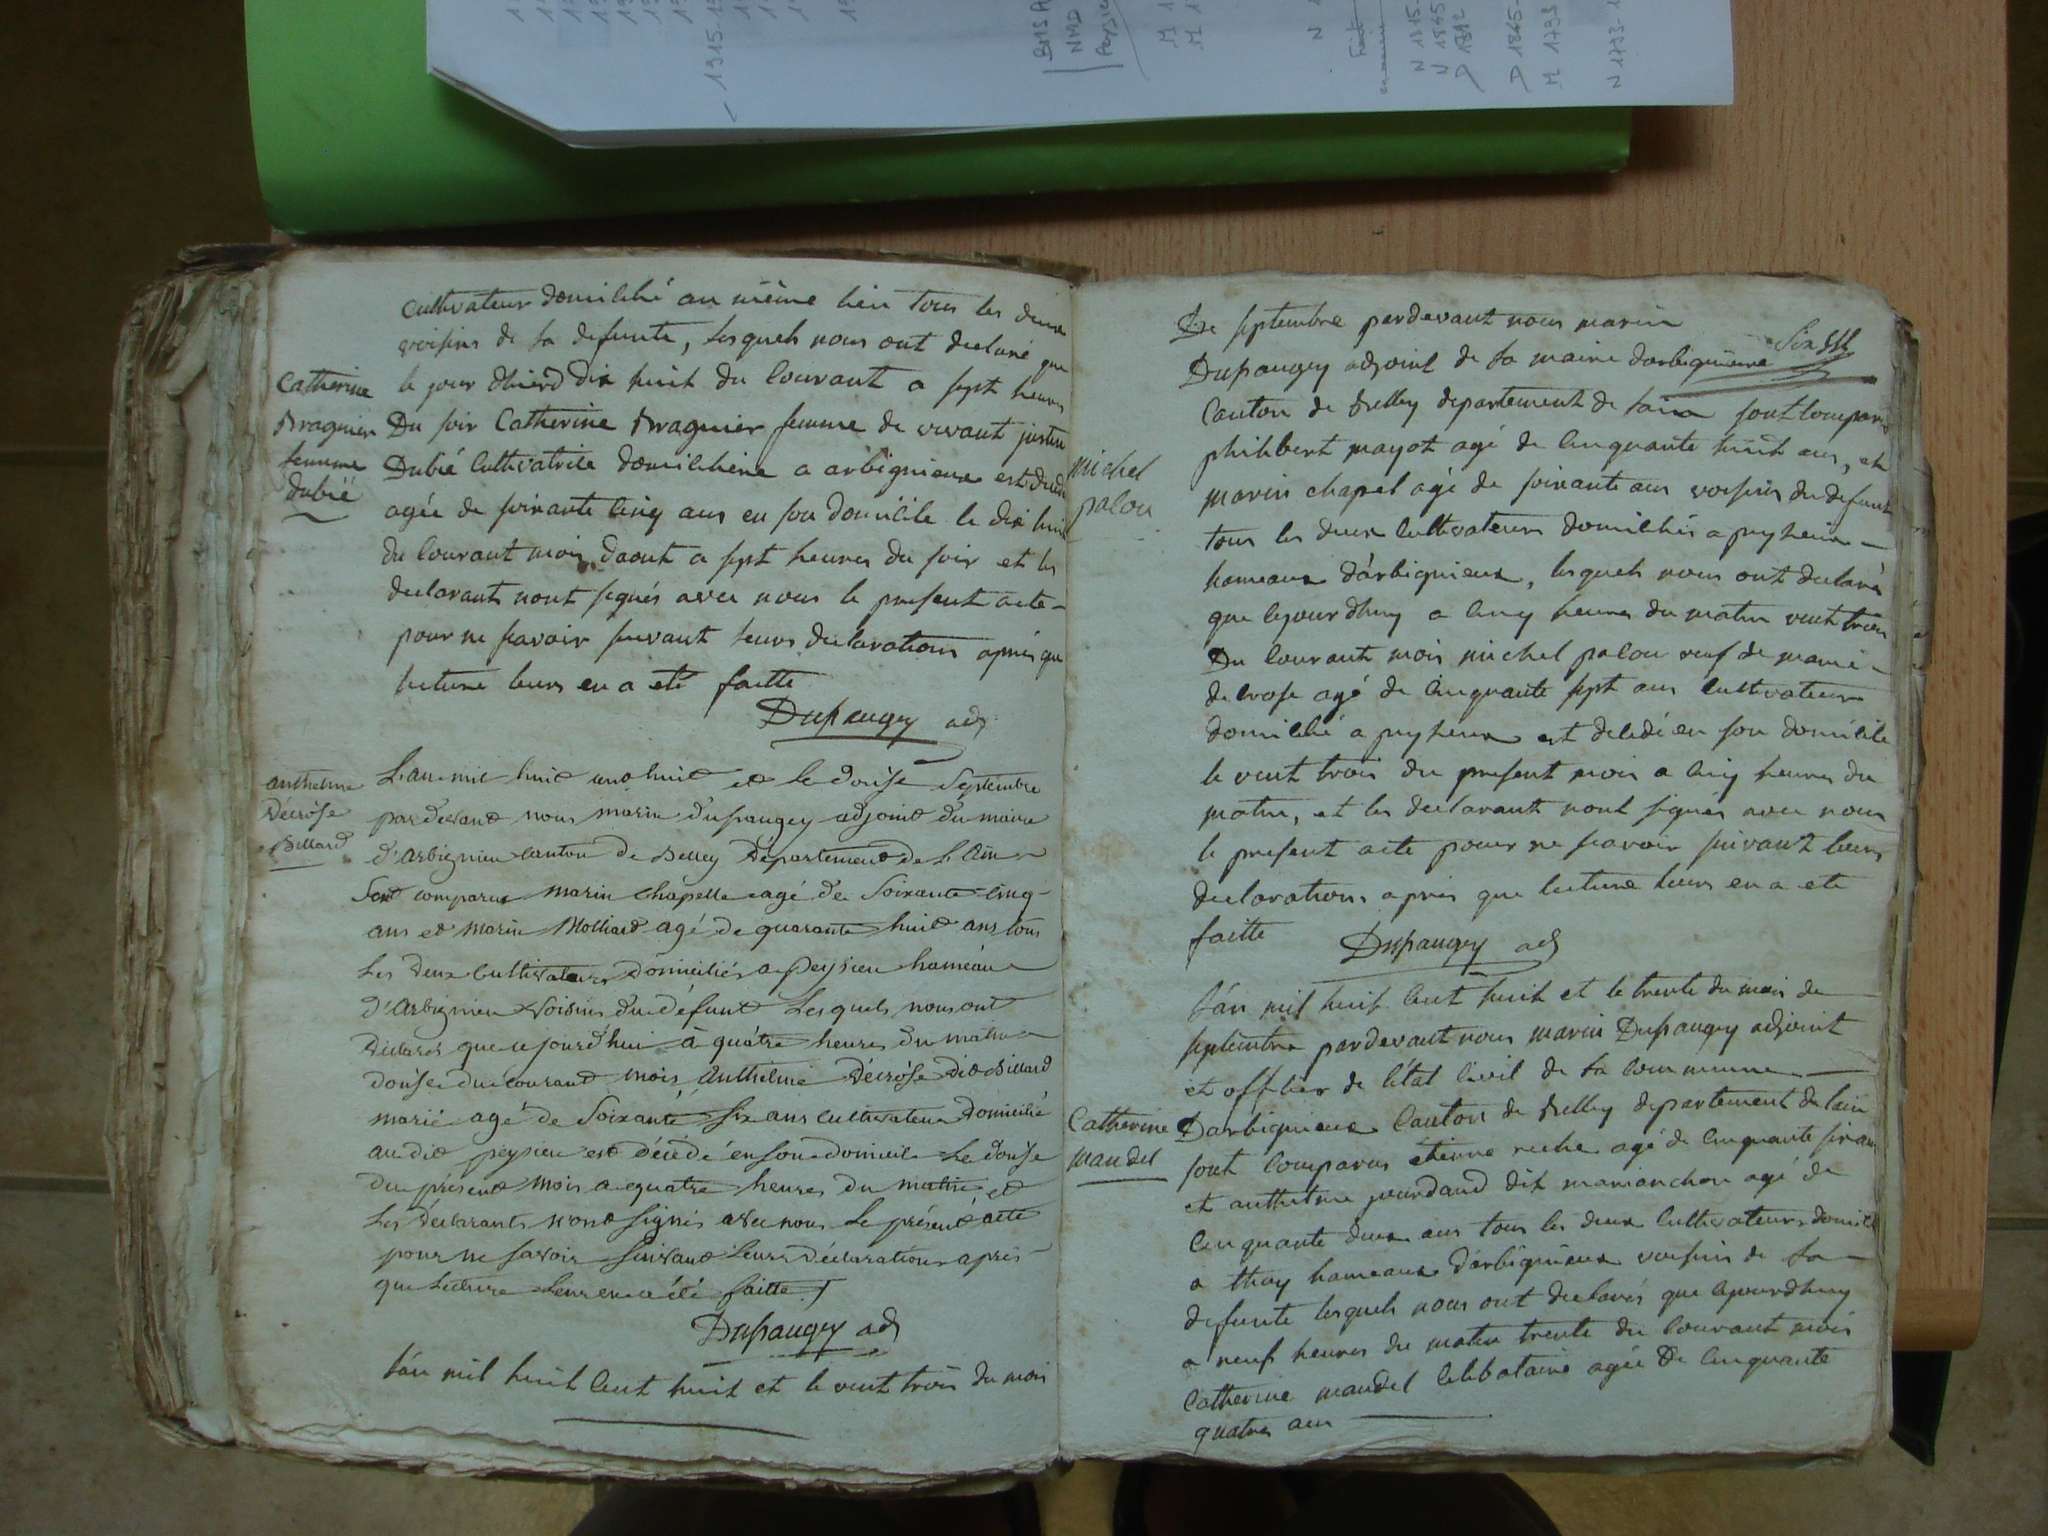 1915-19
BMSA
NMD
Peysieu
M 1
M 1
N 1
N 1815-
N 1845
D 1812
D 1845-
M 1793
N 1793-1
cultivateur domicilié au même lieu tous les deux
voisins de la defunte, lesquels nous ont declaré que
le jour dhierd dix huit du Courant a sept heures
Du soir Catherine Bragnier femme de vivant justin
Dubié Cultivatrice domiciliéee a arbignieux est decedé
agée de soixante Cinq ans en son domicile le dix huit
du Courant mois daout a sept heures du soir et les
declarants nont signés avec nous le present acte
pour ne savoir suivant leurs declarations après que
lecture leurs en a eté faitte
Dupaugey adj
Catherine
Bragnier
femme
dubié
anthelme
Décrôse
Billard
L'an mil huit cent huit et le douse Septembre
pardevant nous marin dupaugey adjoint du maire
d'arbignieu canton de Belley Département de L'Ain
Sont comparus marin chapelle agé de Soixante Cinq
ans et marin Molliard agé de quarante huit ans tous
Les deux Cultivateurs domiciliés a peysieu hameau
d'arbignieu voisins du défunt Lesquels nous ont
Déclarés que ce jourd'hui à quatre heures du matin
douse du courant mois anthelme Décrôse dit Billard
marié agé de Soixante Six ans cultivateur domicilié
au dit peysieu est décédé en son domicile Le douse
du présent mois a quatre heures du matin et
Les déclarants n'ont signés avec nous Le présent acte
pour ne savoir suivant Leurs déclarations après
que Lecture Leurs en a été faitte
Dupaugey adj
L'an mil huit Cent huit et le vint trois du mois
De septembre pardevant nous marin
Dupaugey adjoint de la maire darbignieux
Canton de Belley departement de Lain sont Comparus
philibert mayot agé de Cinquante huit ans, et
marin chapel agé de soixante ans voisins du defunt
tous les deux Cultivateurs domiciliés a peysieux
hameaux d'arbignieux, lesquels nous ont declarés
que lejourdhuy a Cinq heures du matin vint trois
Du Courant mois michel palou veuf de marie
decrose agé de Cinquante sept ans Cultivateur
domicilié a peysieux est decédé en son domicile
le vint trois du present mois a Cinq heures du
matin, et les declarant nont signés avec nous
le present acte pour ne savoir suivant leurs
declarations après que lecture leurs en a eté
faitte
Dupaugey adj
michel
palou
L'an mil huit Cent huit et le trente du mois de
septembre pardevant nous marin Dupaugey adjoint
et officier de létat Civil de la Commune
Darbignieux Canton de Belley departement de lain
sont Comparus étienne reche agé de Cinquante six ans
et anthelme jourdand dit marianchon agé de
Cinquante deux ans tous les deux Cultivateurs domicil
a thoy hameaux d'arbignieux voisins de la
defunte lesquels nous ont declarés que lejourdhuy
a neuf heures du matin trente du Courant mois
Catherine mandel Celibataire agée De Cinquante
quatres ans
Catherine
mandel